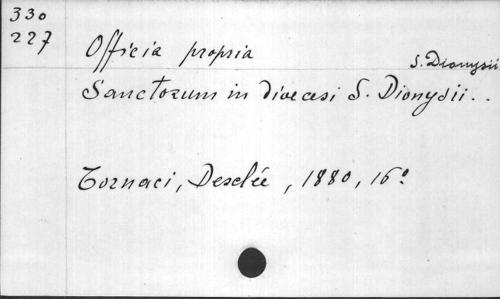 330
227
Officia propria
S. Dionysii
Sanctorum in diœcesi S. Dionysii..
Tornaci, Desclée, 1880, 16°